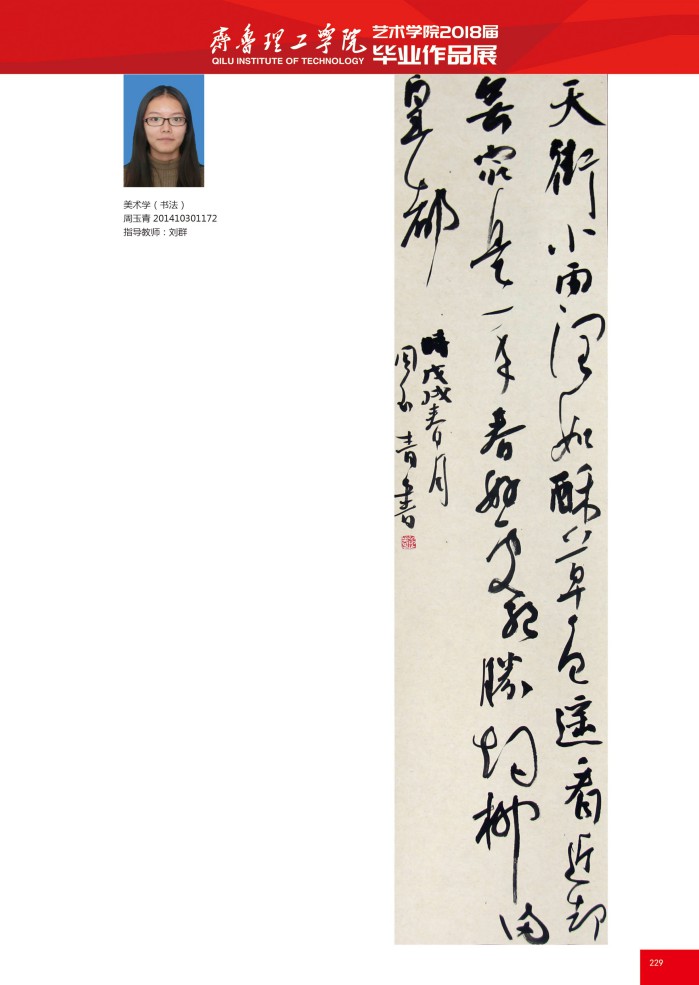 齊魯理工学院
QILU INSTITUTE OF TECHNOLOGY
艺术学院2018届
毕业作品展
美术学（书法）
周玉青 201410301172
指导教师：刘群
天街小雨潤如酥草色遥看近却
無最是一年春好處絕勝烟柳滿
皇都
時戊戌春月
周玉青書
229